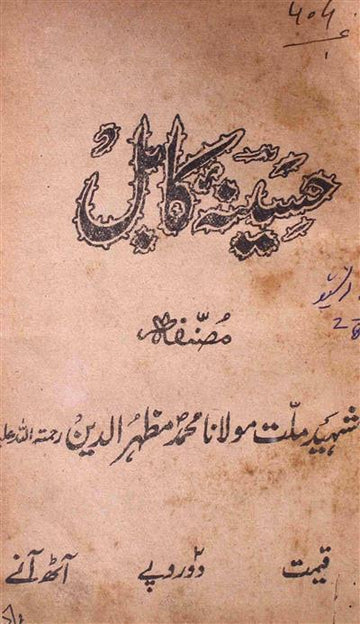 ۴۰۴
حسینۂ کابل
مصنفہ
شہید ملت مولانا محمد مظہر الدین رحمتہ اللہ علیہ
قیمت دو روپے آٹھ آنے